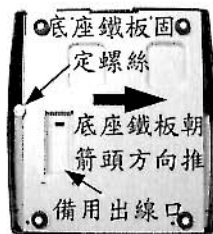 底座鐵板固
定螺絲
底座鐵板朝
箭頭方向推
備用出線口